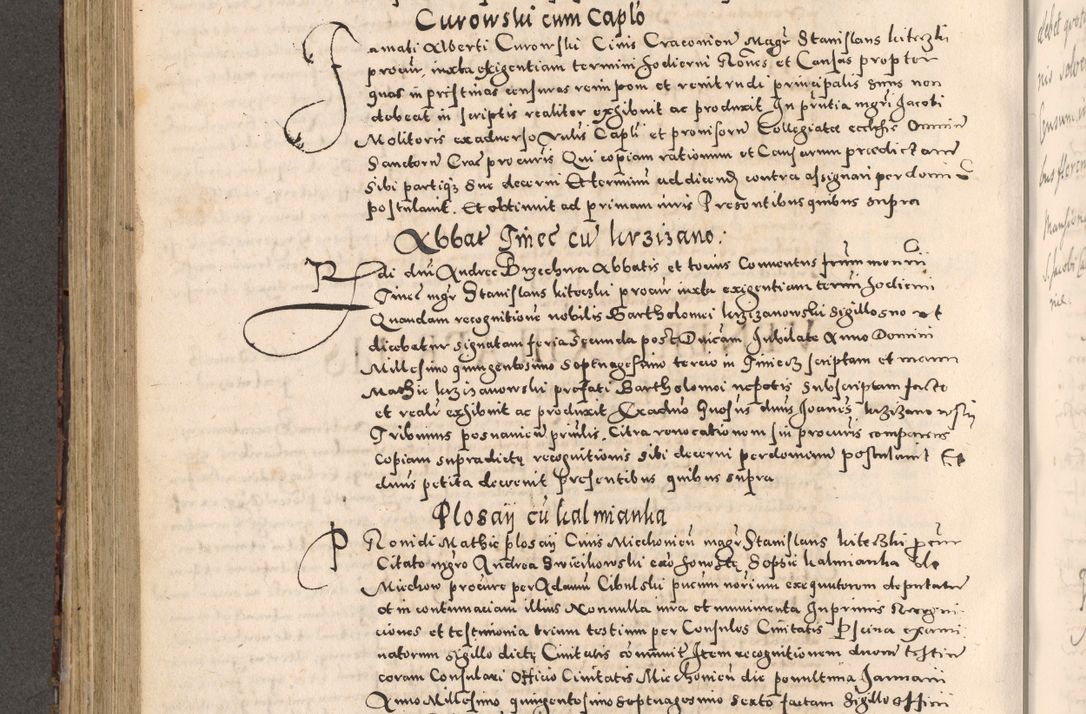 Curowski cum Caplo
Famati Alberti Curowski Civis Cracovien Magr Stanislaus kiteczki
procur, iuxta exigentiam termini hodierni Rones et Causas propter
quas in pristinas censuras reimponi et reintrudi principalis suus non
debeat in scriptis realiter exhibuit ac produxit In pntia mgri Jacobi
Molitoris ex adverso Vnlis Capli et provisoru Collegiatæ ecclesie Omniu
Sanctoru Crac procuris Qui copiam rationum et Causarum prædictaru
sibi partiq; suæ decerni Et terminu ad dicend contra assignari per domi
postulavit. Et obtinuit ad primam iuris Presentibus quibus supra
Abbat Tinec cu krzizano:
Rdi dni Andreæ Brzechwa Abbatis et totius Conventus frum
Tinec mgr Stanislaus kiteczki procur iuxta exigentiam termi hodierni
Quandam recognitione nobilis Bartholomei krzizanowski sigillo suo ut
dicebatur signatam feria secunda post Dnicam Jubilate Anno Domini
Millesimo quingentesimo septuagesimo tercio in Tiniecz scriptam et manu
Mathie krzizanowski præfati Bartholomei nepotis subscriptam facto
et reali exhibuit ac produxit Ex adverso Gnosus dnus Joannes krzizanowski
Tribunus posnanien prinlis. Citra revocationem sui procuris comparens
Copiam supradictę recognitionis sibi decerni per dominum postulavit Et
dnus petita decrevit Presentibus quibus supra
Plosaij cu kalmianka
Providi Mathie plosaij Civis Miechovien magr Stanislaus kiteczki procur
Citato mgro Andrea Swiecikowski ex adverso honestę Sophie kalmianka de
Miechow procure per Adamu Cibulski exequutorem deputatu
et in contumaciam illius Nonnulla iura et munimenta Inprimis Recogni
ciones et testimonia trium testium per Consules Civitatis Pscina exami
natorum sigillo dictę Civitatis communit Item recognitionem duoru testiu
coram Consulari Officio Civitatis Miechovien die penultima Januarii
Anno Millesimo quingentesimo septuagesimo sexto factam Sigillo officii